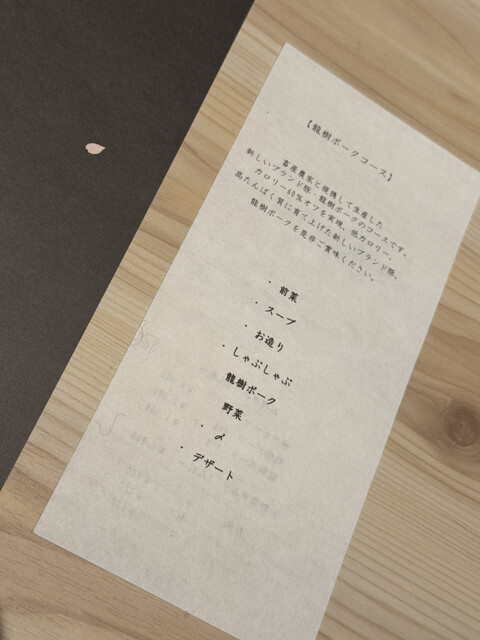 【龍樹ポークコース】
畜産農家と提携して生産した
新しいブランド豚・龍樹ポークのコースです。
カロリー60%オフを実現、低カロリー、
高たんぱく質に育て上げた新しいブランド豚、
龍樹ポークを是非ご賞味ください。
・ 前菜
・ スープ
・ お造り
・ しゃぶしゃぶ
龍樹ポーク
野菜
・ 〆
・ デザート